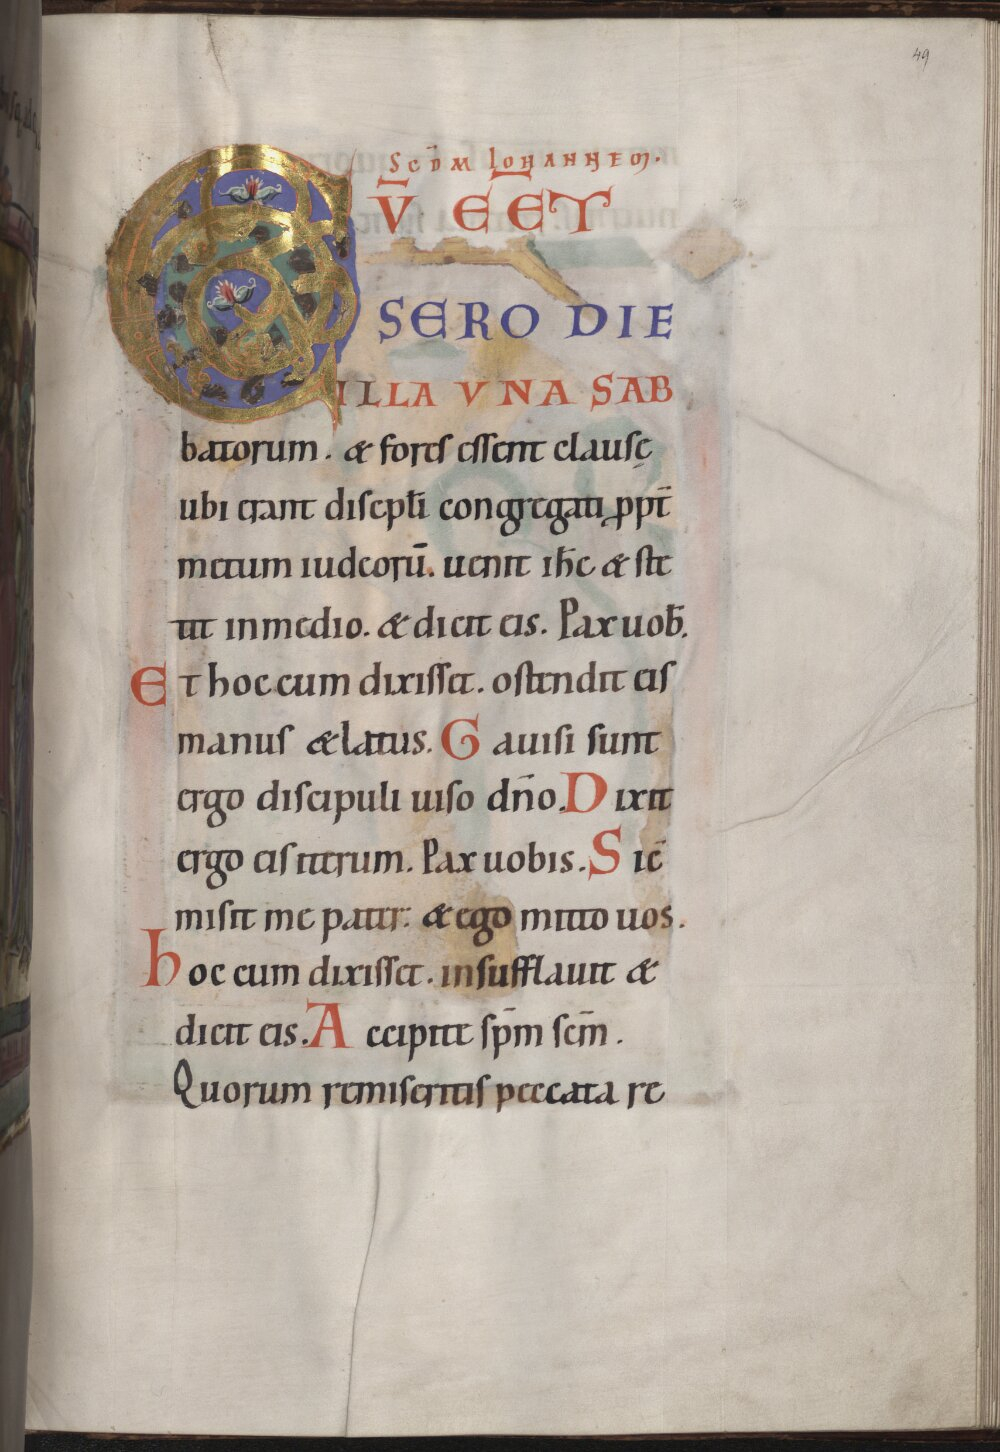 49
Scd̄m Iohannem.
CV̄ EĒET
SERO DIE
ILLA VNA SAB
batorum. & fores essent clausę
ubi erant discipl̄i congregati ꝓpt̄
metum iudeorū. uenit ih̄c & ste
tit inmedio. & dicit eis. Pax uob̄.
Et hoc cum dixisset. ostendit eis
manus & latus. Gauisi sunt
ergo discipuli uiso dn̄o. Dixit
ergo eis iterum. Pax uobis. Sic̄
misit me pater. & ego mitto uos.
hoc cum dixisset. insufflauit &
dicit eis. Accipite sp̄m sc̄m.
Quorum remiseritis peccata re